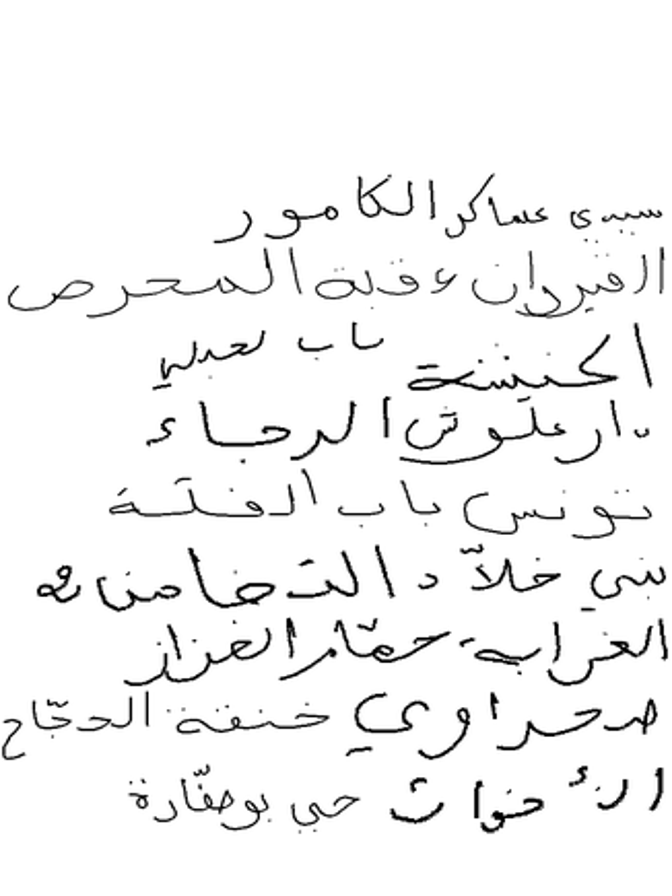 سيدي عساكر الكامور
القيروان عقبة المحرص
الحنيشة باب لعدلي
دار علوش الرجاء
تونس باب الفلة
بني خلاّد التضامن 2
الغرابة حفّار الغزاز
صحراوي خنقة الحجّاج
الأخوات حي بوصفّارة